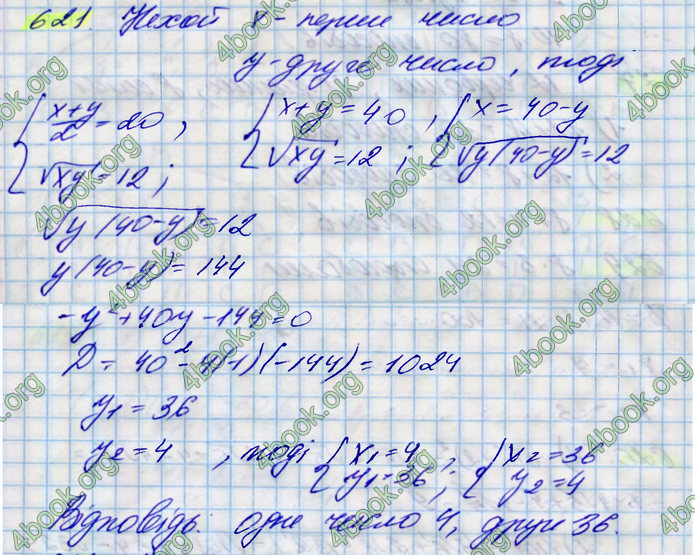 621. Нехай x - перше число
y - друге число, тоді
{ (x+y)/2 = 20, √(xy) = 12; { x+y = 40, √(xy) = 12; { x = 40-y, √(y(40-y)) = 12
√(y(40-y)) = 12
y(40-y) = 144
-y²+40y-144=0
D = 40²-4(-1)(-144) = 1024
y₁ = 36
y₂ = 4, тоді { x₁ = 4, y₁ = 36; { x₂ = 36, y₂ = 4
Відповідь: одне число 4, друге 36.
4book.org